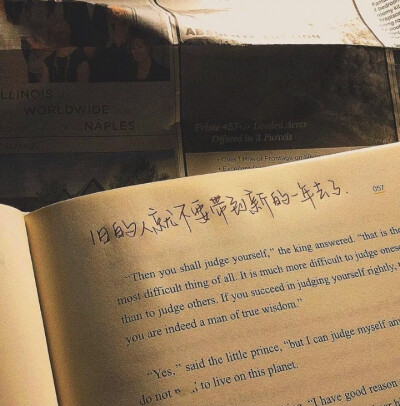 ILLINOIS
WORLDWIDE
NAPLES
Offered in 3 Parcels
旧的人就不要带到新的一年去了.
057
"Then you shall judge yourself," the king answered. "that is the
most difficult thing of all. It is much more difficult to judge
than to judge others. If you succeed in judging yourself rightly,
you are indeed a man of true wisdom."
"Yes," said the little prince, "but I can judge myself
do not to live on this planet.
"I have good reason